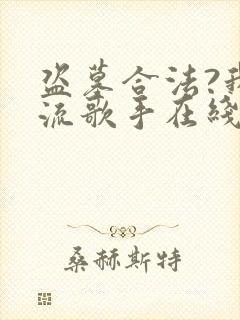 盗墓合法?我
流歌手在綫
桑赫斯特